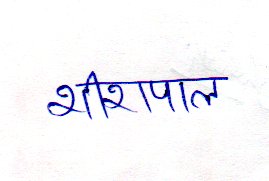 शीशपाल